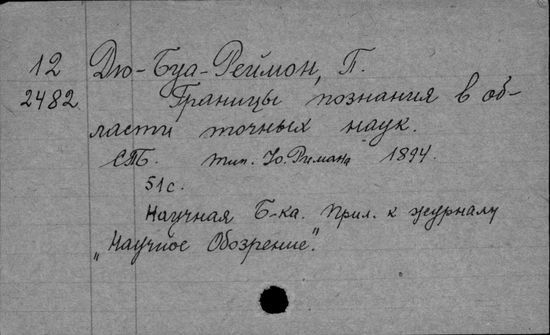 12 Дю-Буа-Реймон, П.
2482 Границы познания в об-
ласти точных наук.
СПБ. тип. Ю. Римана 1894.
51 с.
Научная Б-ка. Прил. к журналу
„Научное Обозрение".